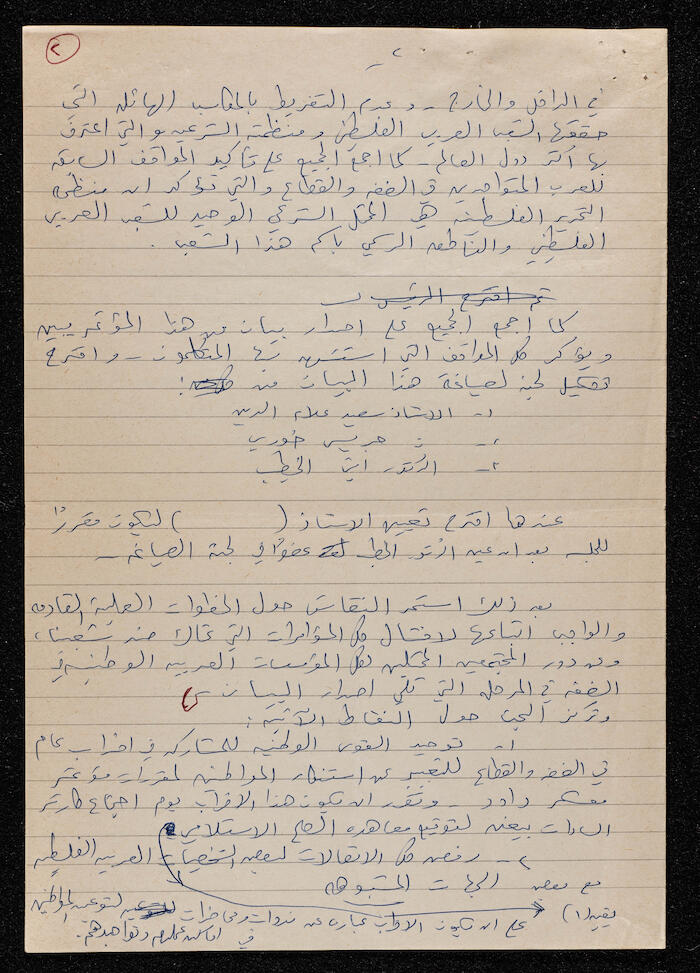 ٢
٢
في الداخل والخارج - وعدم التفريط بالمكاسب الهائله التي
حققها الشعب العربي الفلسطيني ومنظمته الشرعيه والتي اعترف
بها أكثر دول العالم - كما اجمع الجميع على تأكيد المواقف السابقه
للعرب المتواجدين في الضفه والقطاع والتي تؤكد ان منظمه
التحرير الفلسطينيه هي الممثل الشرعي الوحيد للشعب العربي
الفلسطيني والناطقه الرسمي باسم هذا الشعب .
ثم اقترح الرئيس
كما اجمع الجميع على اصدار بيان من هذا المؤتمر يبين
ويؤكد كل المواقف التي استشهد بها المتكلمون - واقترح
تشكيل لجنة لصياغة هذا البيان من :
١- الاستاذ سعيد علاء الدين
٢- = جريس خوري
٣- الدكتور امين الخطيب
عندها اقترح تعيين الاستاذ ( ) ليكون مقررًا
للجلسه بعد ان عين الدكتور الخطيب عضوًا في لجنة الصياغه -
بعد ذلك استمر النقاش حول الخطوات العملية القادمه
والواجب اتباعها لافشال كل المؤامرات التي تحاك ضد شعبنا،
وعن دور المجتمعين الممثلين لكل المؤسسات العربيه الوطنيه في
الضفه في المرحله التي تلي اصدار البيان
وتركز البحث حول النقاط الآتيه :
١- توحيد القوى الوطنيه للمشاركه في اضراب عام
في الضفه والقطاع للتعبير عن استنكار المواطنين لمقررات مؤتمر
معسكر داود - وتقرر ان يكون هذا الاضراب يوم اجتماع كارتر
السادات بيغن لتوقيع معاهده الصلح الاستسلامي
٢- رفض كل الاتصالات لبعض الشخصيات العربيه الفلسطينيه
مع بعض الجهات المشبوهه
بقيه (١) على ان يكون الاضراب عباره عن ندوات ومحاضرات لتوعيه المواطنين
في اماكن عملهم وتواجدهم.